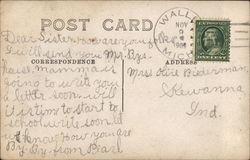 POST CARD
WALL
NOV
9
MICH
Dear Sister how are you
I will send you Mr. Bys.
CORRESPONDENCE
ADDRESS
Mamma is
going to write you
a letter soon will
Miss Olive Biderman
Kewanna
Ind.
listen to start to
school write soon &
let know how you are
By By from Pearl